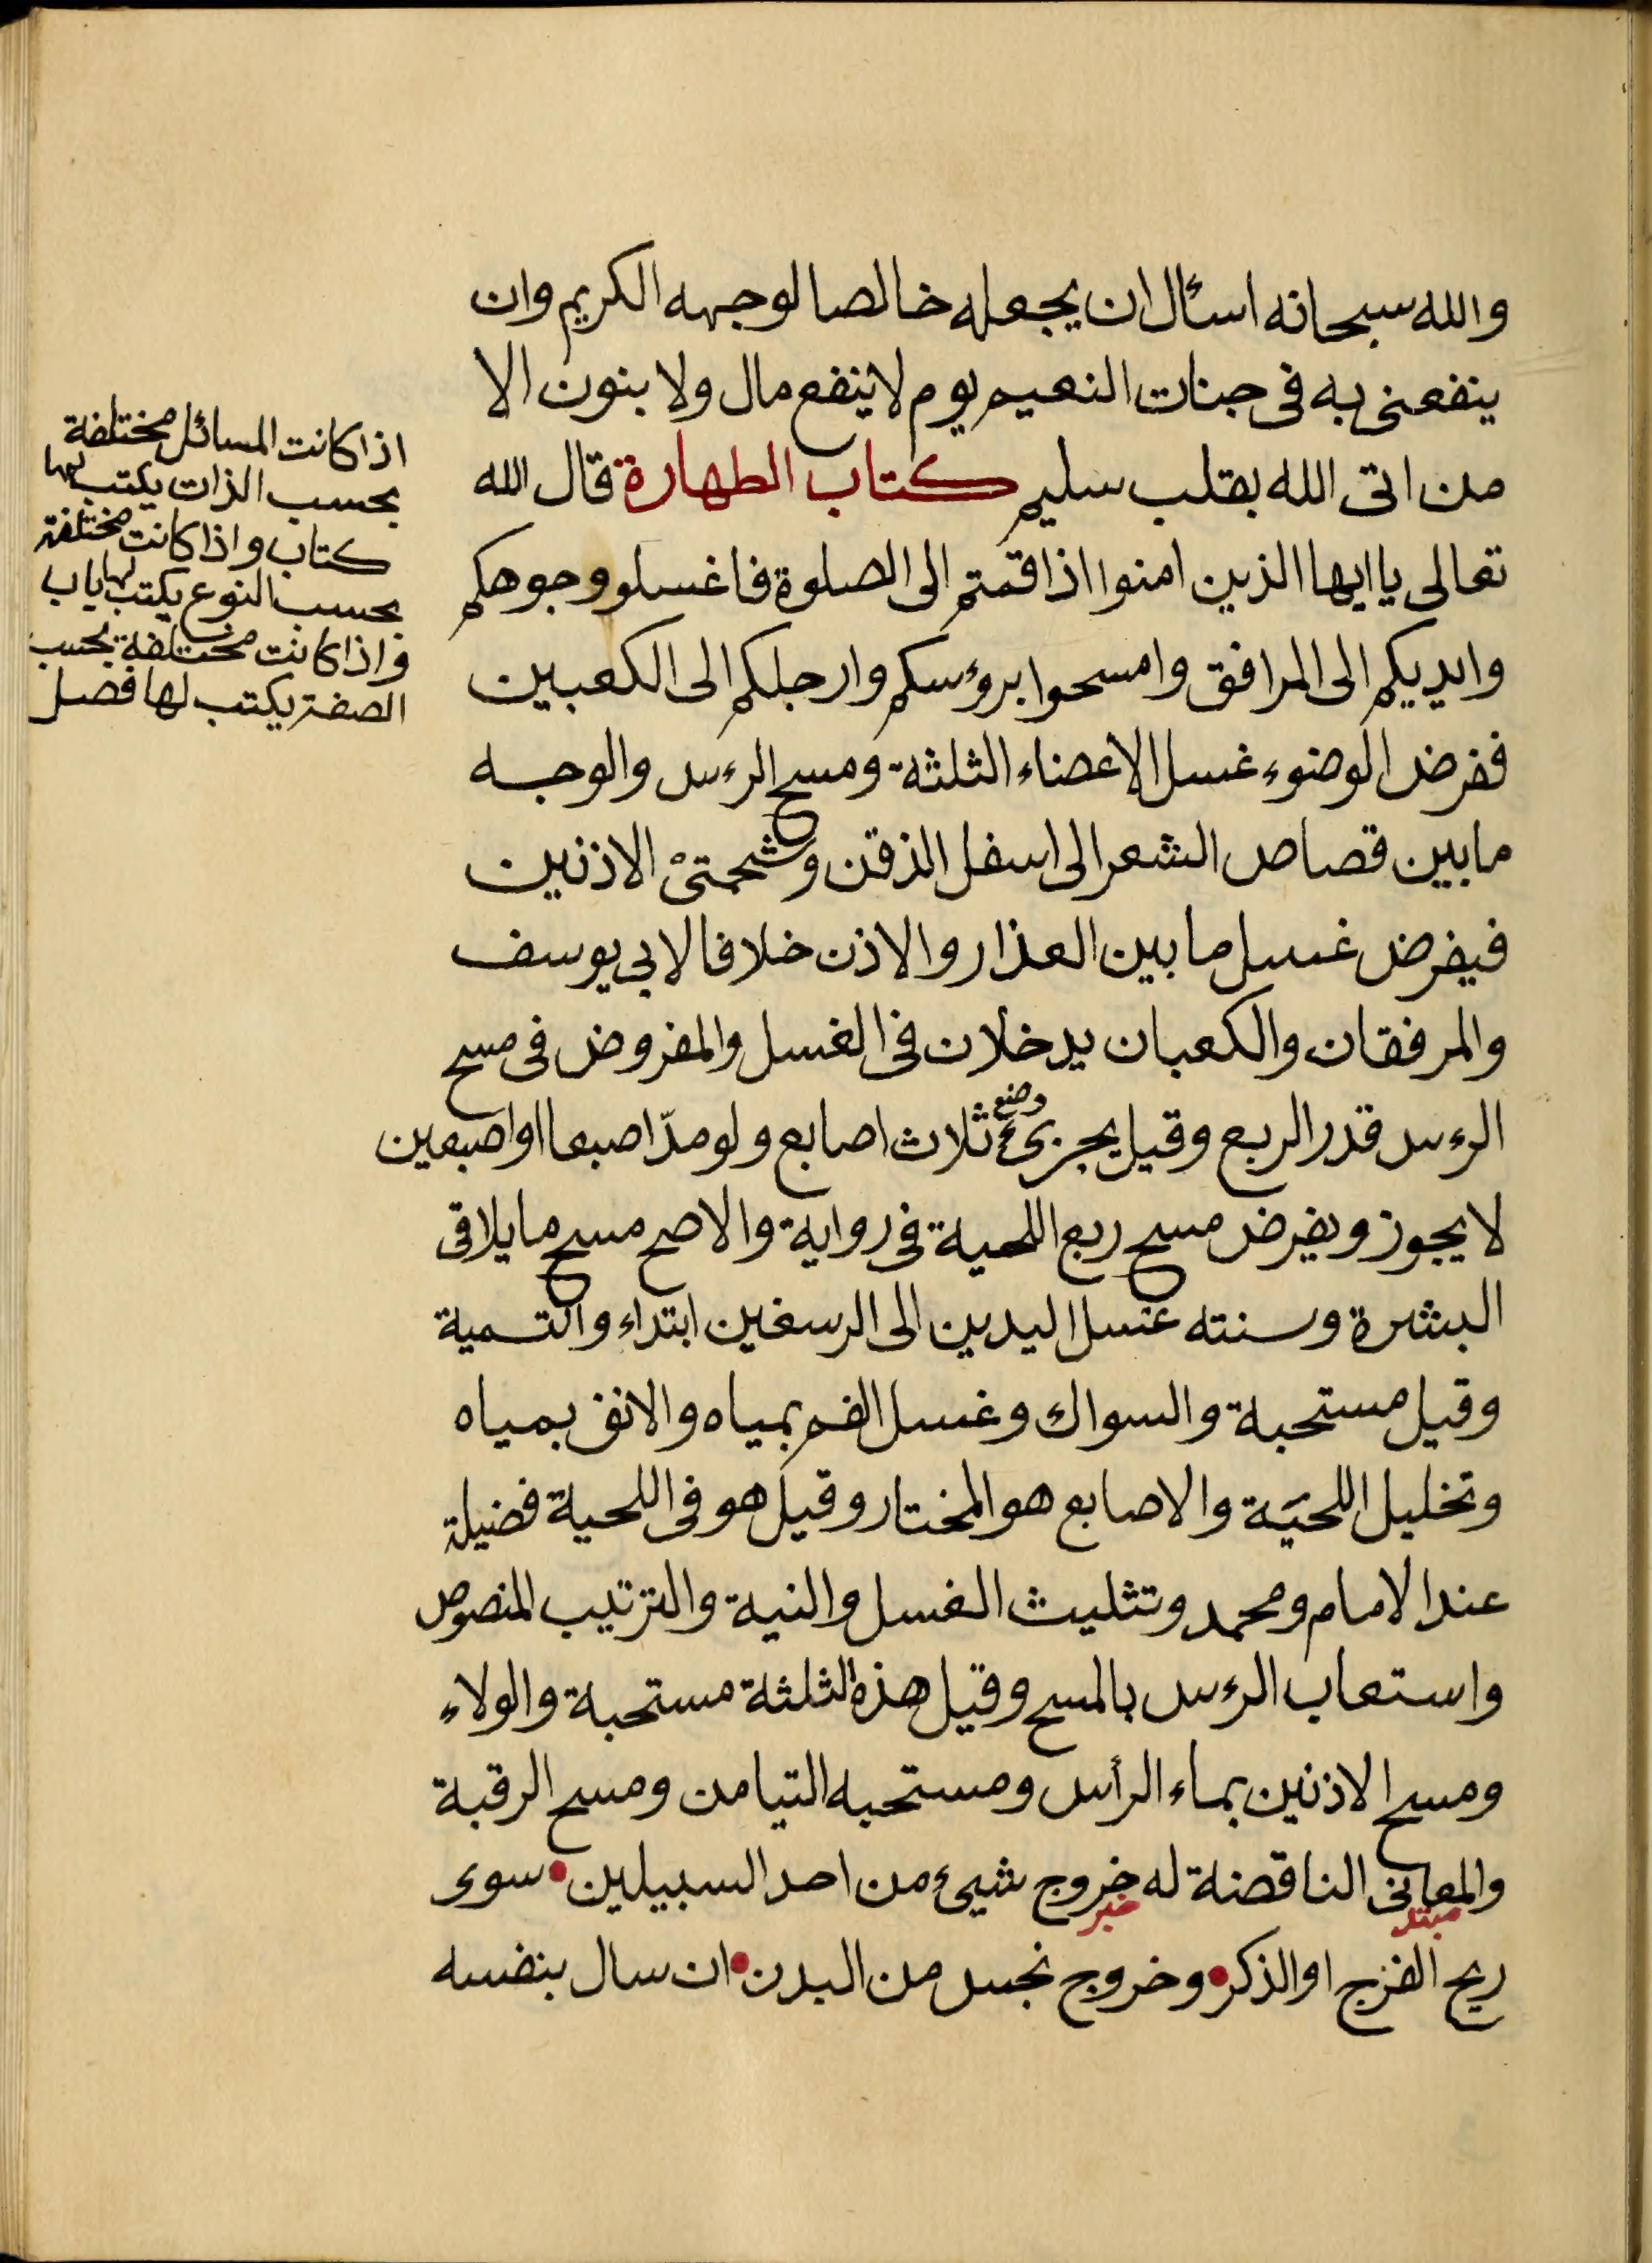 والله سبحانه اسأل ان يجعله خالصا لوجهه الكريم وان
ينفعنى به فى جنات النعيم يوم لا ينفع مال ولا بنون الا
من اتى الله بقلب سليم كتاب الطهارة قال الله
تعالى يا ايها الذين امنوا اذا قمتم الى الصلوة فاغسلو وجوهكم
وايديكم الى المرافق وامسحوا برؤسكم وارجلكم الى الكعبين
ففرض الوضوء غسل الاعضاء الثلثة ومسح الرءس والوجه
مابين قصاص الشعر الى اسفل الذقن وشحمتىْ الاذنين
فيفرض غسل ما بين العذار والاذن خلافا لابى يوسف
والمرفقان والكعبان يدخلان فى الغسل والمفروض فى مسح
الرءس قدر الربع وقيل يجزئ وضع ثلاث اصابع ولو مدّ اصبعا او اصبعين
لا يجوز ويفرض مسح ربع اللحية فى رواية والاصح مسح ما يلاقى
البشرة وسنته غسل اليدين الى الرسغين ابتداء والتسمية
وقيل مستحبة والسواك وغسل الفم بمياه والانف بمياه
وتخليل اللحيَة والاصابع هو المختار وقيل هو فى اللحية فضيلة
عند الامام ومحمد وتثليث الغسل والنية والترتيب المنصوص
واستعاب الرءس بالمسح وقيل هذه الثلثة مستحبة والولاء
ومسح الاذنين بماء الرأس ومستحبه التيامن ومسح الرقبة
والمعانى الناقضة له خروج شيئ من احد السبيلين • سوى
مبتدا خبر
ريح الفرج او الذكر • وخروج نجس من البدن • ان سال بنفسه
اذا كانت المسائل مختلفة
بحسب الذات يكتب لها
كتاب واذا كانت مختلفة
بحسب النوع يكتب لها باب
واذا كانت مختلفة بحسب
الصفة يكتب لها فصل